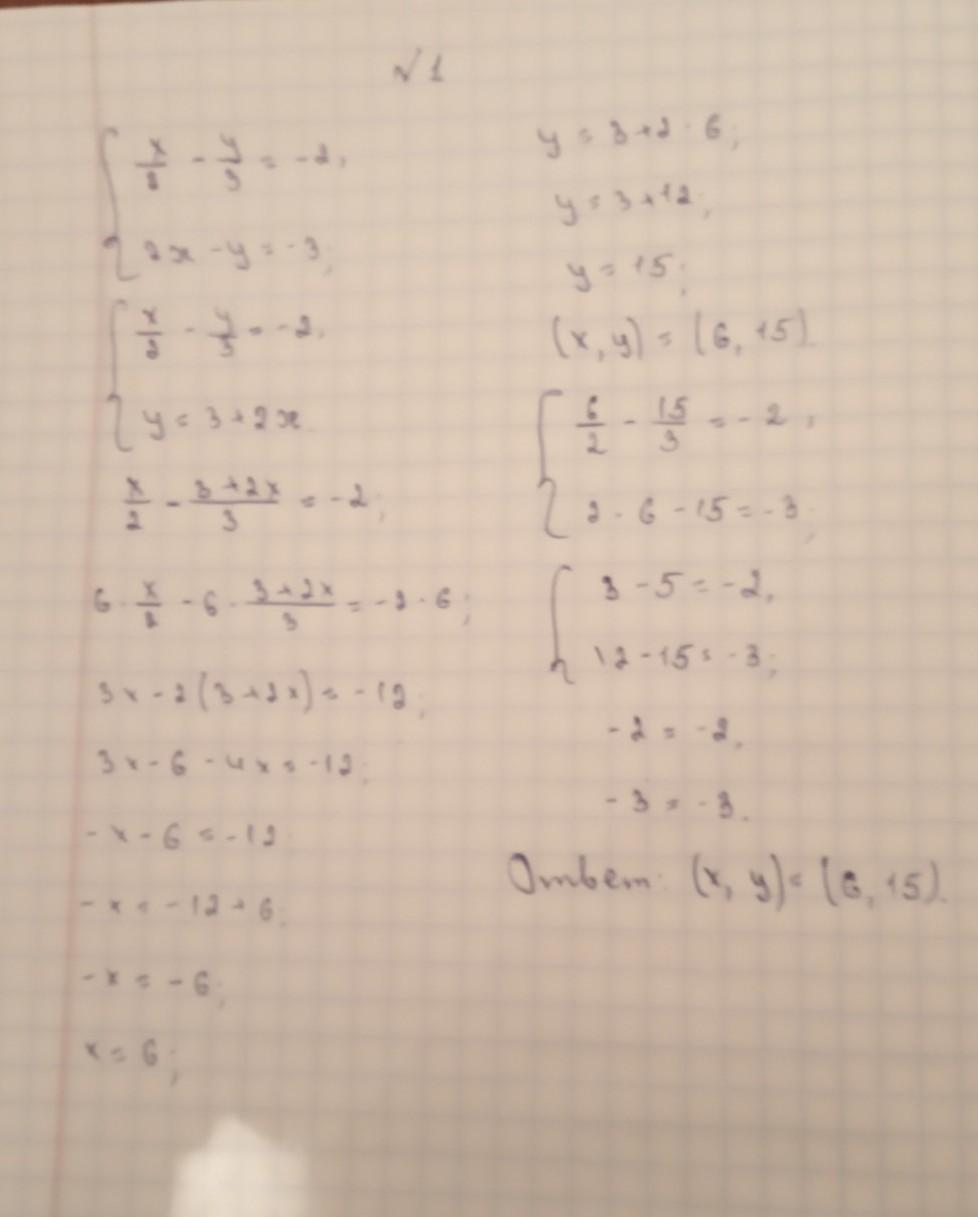 √1
x/2 - y/3 = -2,
2x - y = -3;
x/2 - y/3 = -2,
y = 3+2x
x/2 - (3+2x)/3 = -2;
6 · x/2 - 6 · (3+2x)/3 = -2 · 6;
3x - 2(3+2x) = -12;
3x - 6 - 4x = -12;
-x - 6 = -12
-x = -12 + 6;
-x = -6;
x = 6;
y = 3+2 · 6;
y = 3+12;
y = 15;
(x, y) = (6, 15).
6/2 - 15/3 = -2,
2 · 6 - 15 = -3;
3 - 5 = -2,
12 - 15 = -3;
-2 = -2,
-3 = -3.
Ответ: (x, y) = (6, 15).